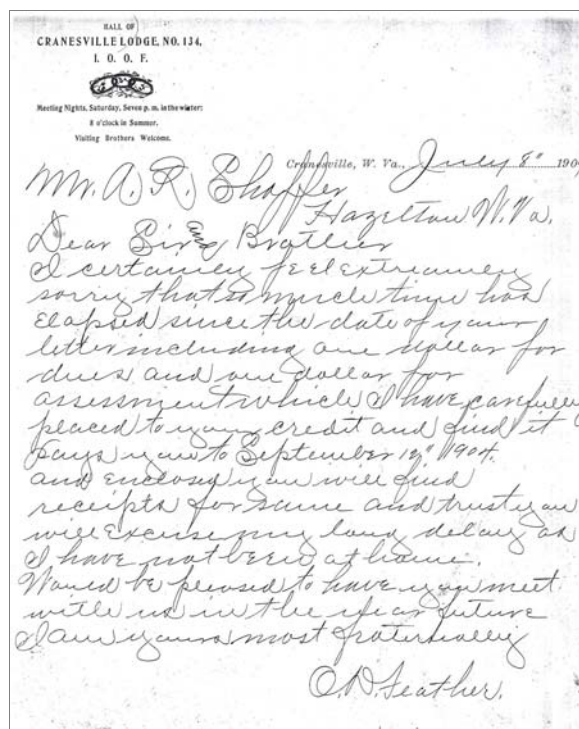 HALL OF
CRANESVILLE LODGE, NO. 134,
I. O. O. F.
Meeting Nights, Saturday, Seven p. m. in the winter:
8 o'clock in Summer.
Visiting Brothers Welcome.
Cranesville, W. Va., July 8" 190
Mr. A. R. Shaffer
Hazelton W. Va.
Dear Sir and Brother
I certainly feel extreamly
sorry that so much time has
elapsed since the date of your
letter including one dollar for
dues and one dollar for
assessment which I have carefully
placed to your credit and find it
pays you to September 12" 1904.
and enclosed you will find
receipts for same and trust you
will excuse my long delay as
I have not been at home.
Would be pleased to have you meet
with us in the near future
I am yours most fraternally
O. D. Feather.